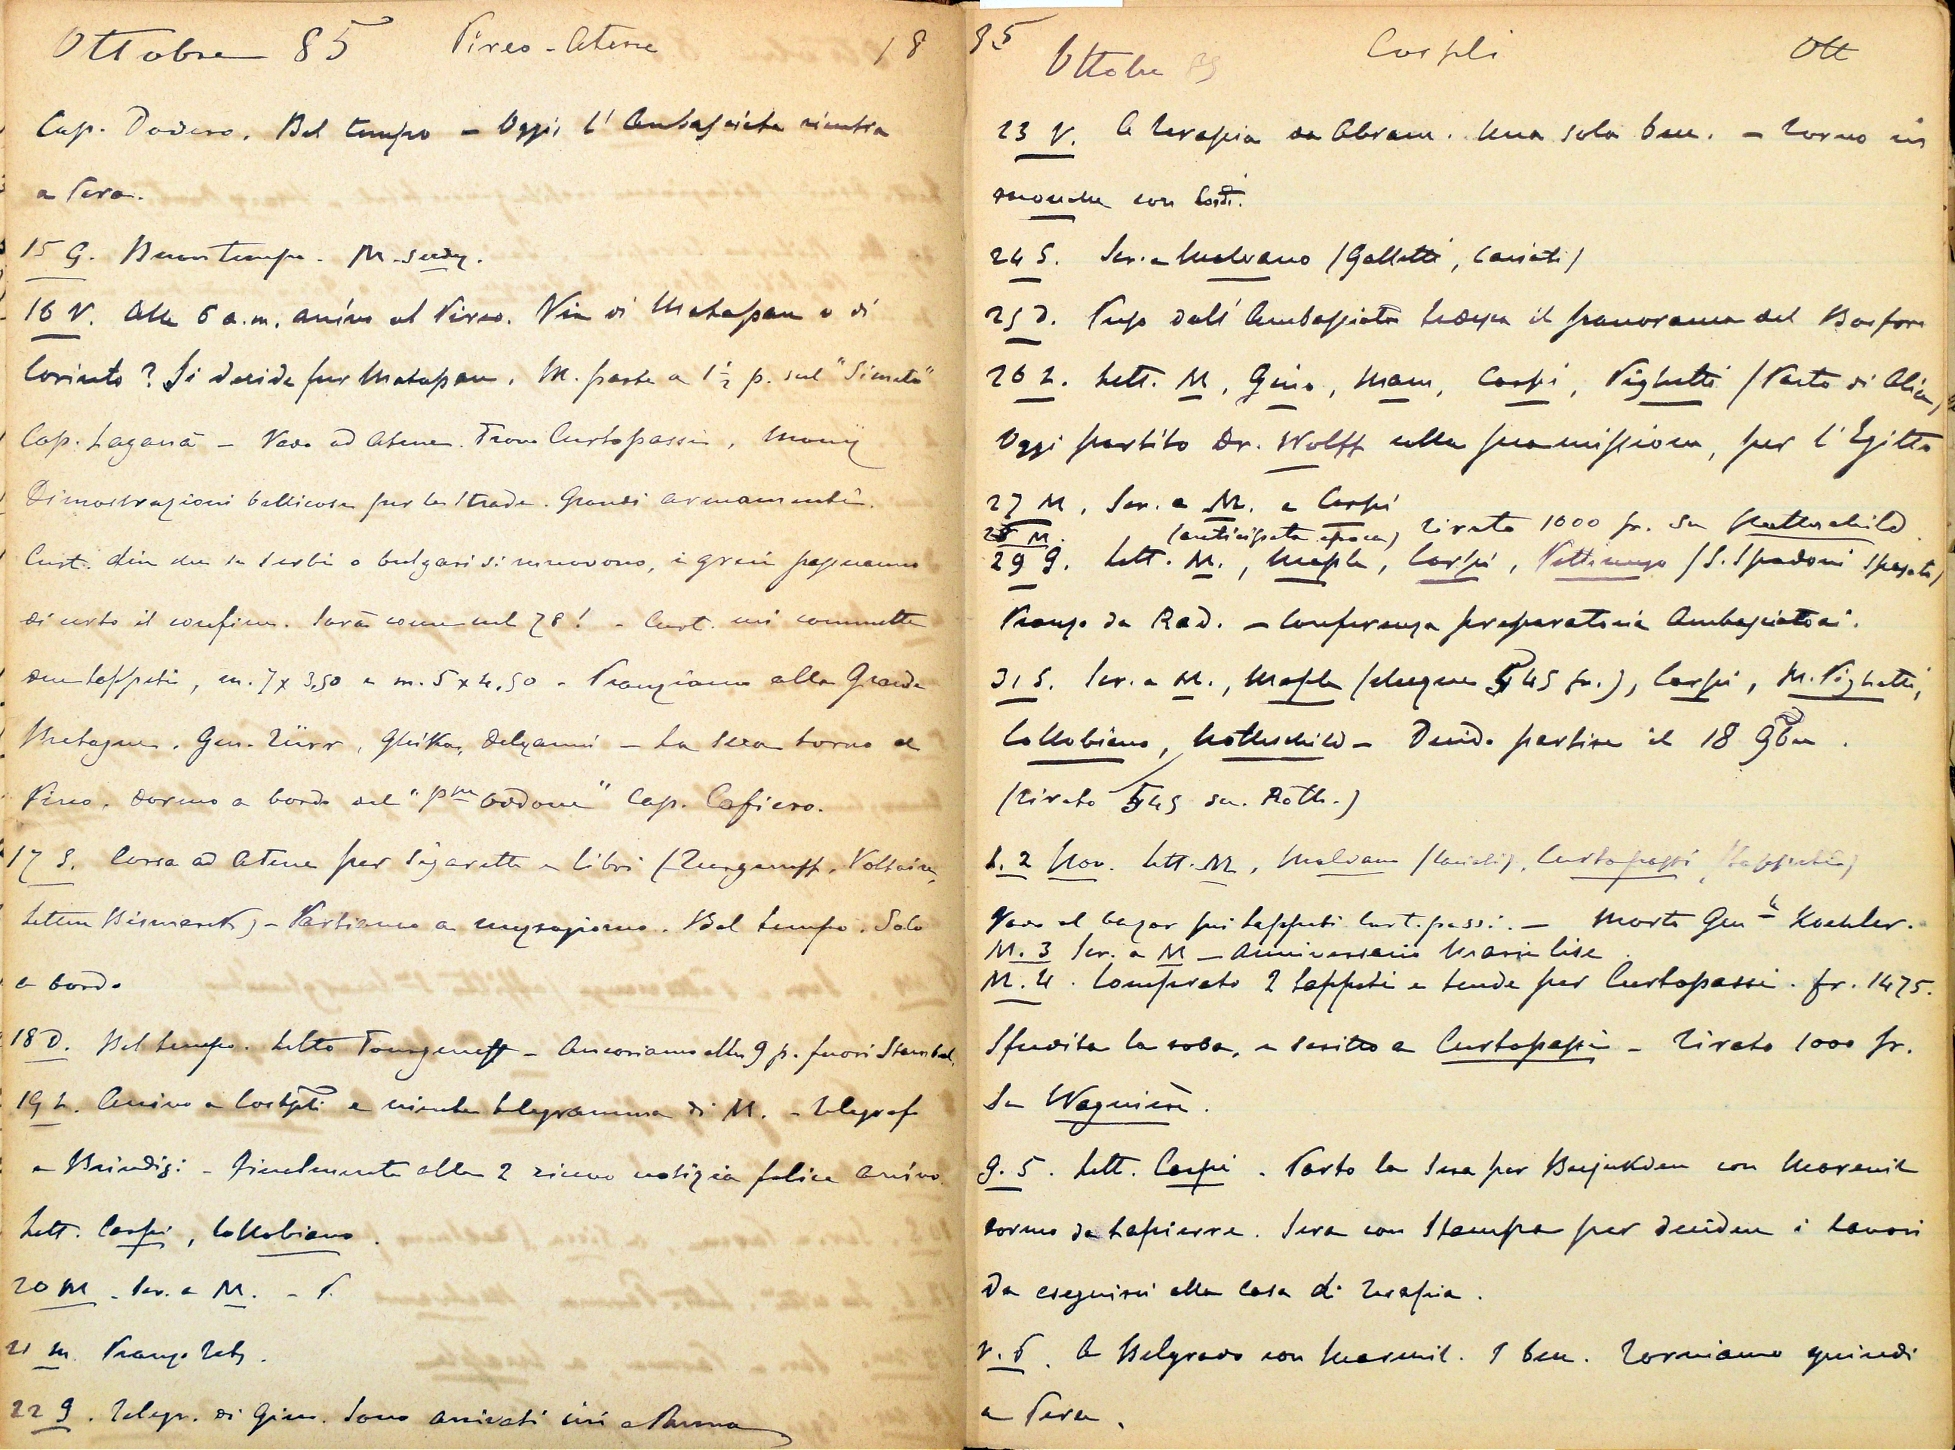 Ottobre 85 Pireo - Atene 18
Cap. Dodero. Bel tempo - Oggi l'Ambasciata rientra
a Pera.
15 G. Buon tempo. M.
16 V. Alle 6 a.m. arrivo al Pireo. Via di Matapan o di
Corinto? Si decide per Matapan. M. parte a 1 1/2 p. sul "Simeto"
Cap. Laganà - Vado ad Atene. Trovo Curtopassi,
Dimostrazioni bellicose per le strade. Grandi armamenti.
Curt. dice che se serbi o bulgari si muovono, i greci passeranno
di certo il confine. Sarà come nel 78! - Curt. mi commette
due tappeti, m. 7 x 3,50 e m. 5 x 4,50 - Pranziamo alla Grande
Bretagne. Gen. Türr, Ghika, Delyanni - La sera torno al
Pireo. Dormo a bordo del " " Cap. Cafiero.
17 S. Corsa ad Atene per sigarette e libri (Turgeneff, Voltaire,
lettere Bismarck) - Partiamo a mezzogiorno. Bel tempo. Solo
a bordo
18 D. Bel tempo. Letto Tourgeneff - Ancoriamo alle 9 p. fuori Stambul.
19 L. Arrivo a Costpli e niente telegramma di M. - Telegrafo
a Brindisi - Finalmente alle 2 ricevo notizia felice arrivo.
Lett. Carpi, Collobiano.
20 M. Scr. a M. - P.
21 M. Pranzo
22 G. Telegr. di Gino. Sono arrivati ieri a Parma
85 Ottobre 85 Cospli Ott
23 V. A Terapia da Abram. Una sola bec. - Torno in
mouche con
24 S. Scr. a Malvano (Galletti, Cariati)
25 D. Pingo dall'Ambasciata tedesca il panorama del Bosforo
26 L. Lett. M, Gino, Mam, Carpi, Pighetti (Parto di Alice)
Oggi partito Dr. Wolff colla sua missione, per l'Egitto
27 M. Scr. a M. e Carpi
28 M. (anticipata epoca) Tirato 1000 fr. su Rothschild
29 G. Lett. M., Maple, Carpi, Pettinengo (S. Spadoni Sposato)
Pranzo da Rad. - Conferenza preparatoria Ambasciatori.
31 S. Scr. a M., Maple (cheque 545 fr.), Carpi, M. Pighetti,
Collobiano, Rothschild - Decido partire il 18 9bre.
(Tirato 545 su. Roth.)
L. 2 Nov. Lett. M, Malvano (Cariati), Curtopassi (tappeti)
Vado al bazar pei tappeti Curtopassi. - Morte Gen. Koehler.
M. 3 Scr. a M - Anniversario Marie Lise
M. 4. Comprato 2 tappeti e tende per Curtopassi. fr. 1475.
Spedita la roba, e scritto a Curtopassi - Tirato 1000 fr.
su Wagnière.
G. 5. Lett. Carpi. Parto la sera per Bujukdere con
dormo da Lapierre. Sera con Stampa per decidere i lavori
da eseguirsi alla casa di Terapia.
V. 6. A Belgrado con 1 bec. Torniamo quindi
a Pera.